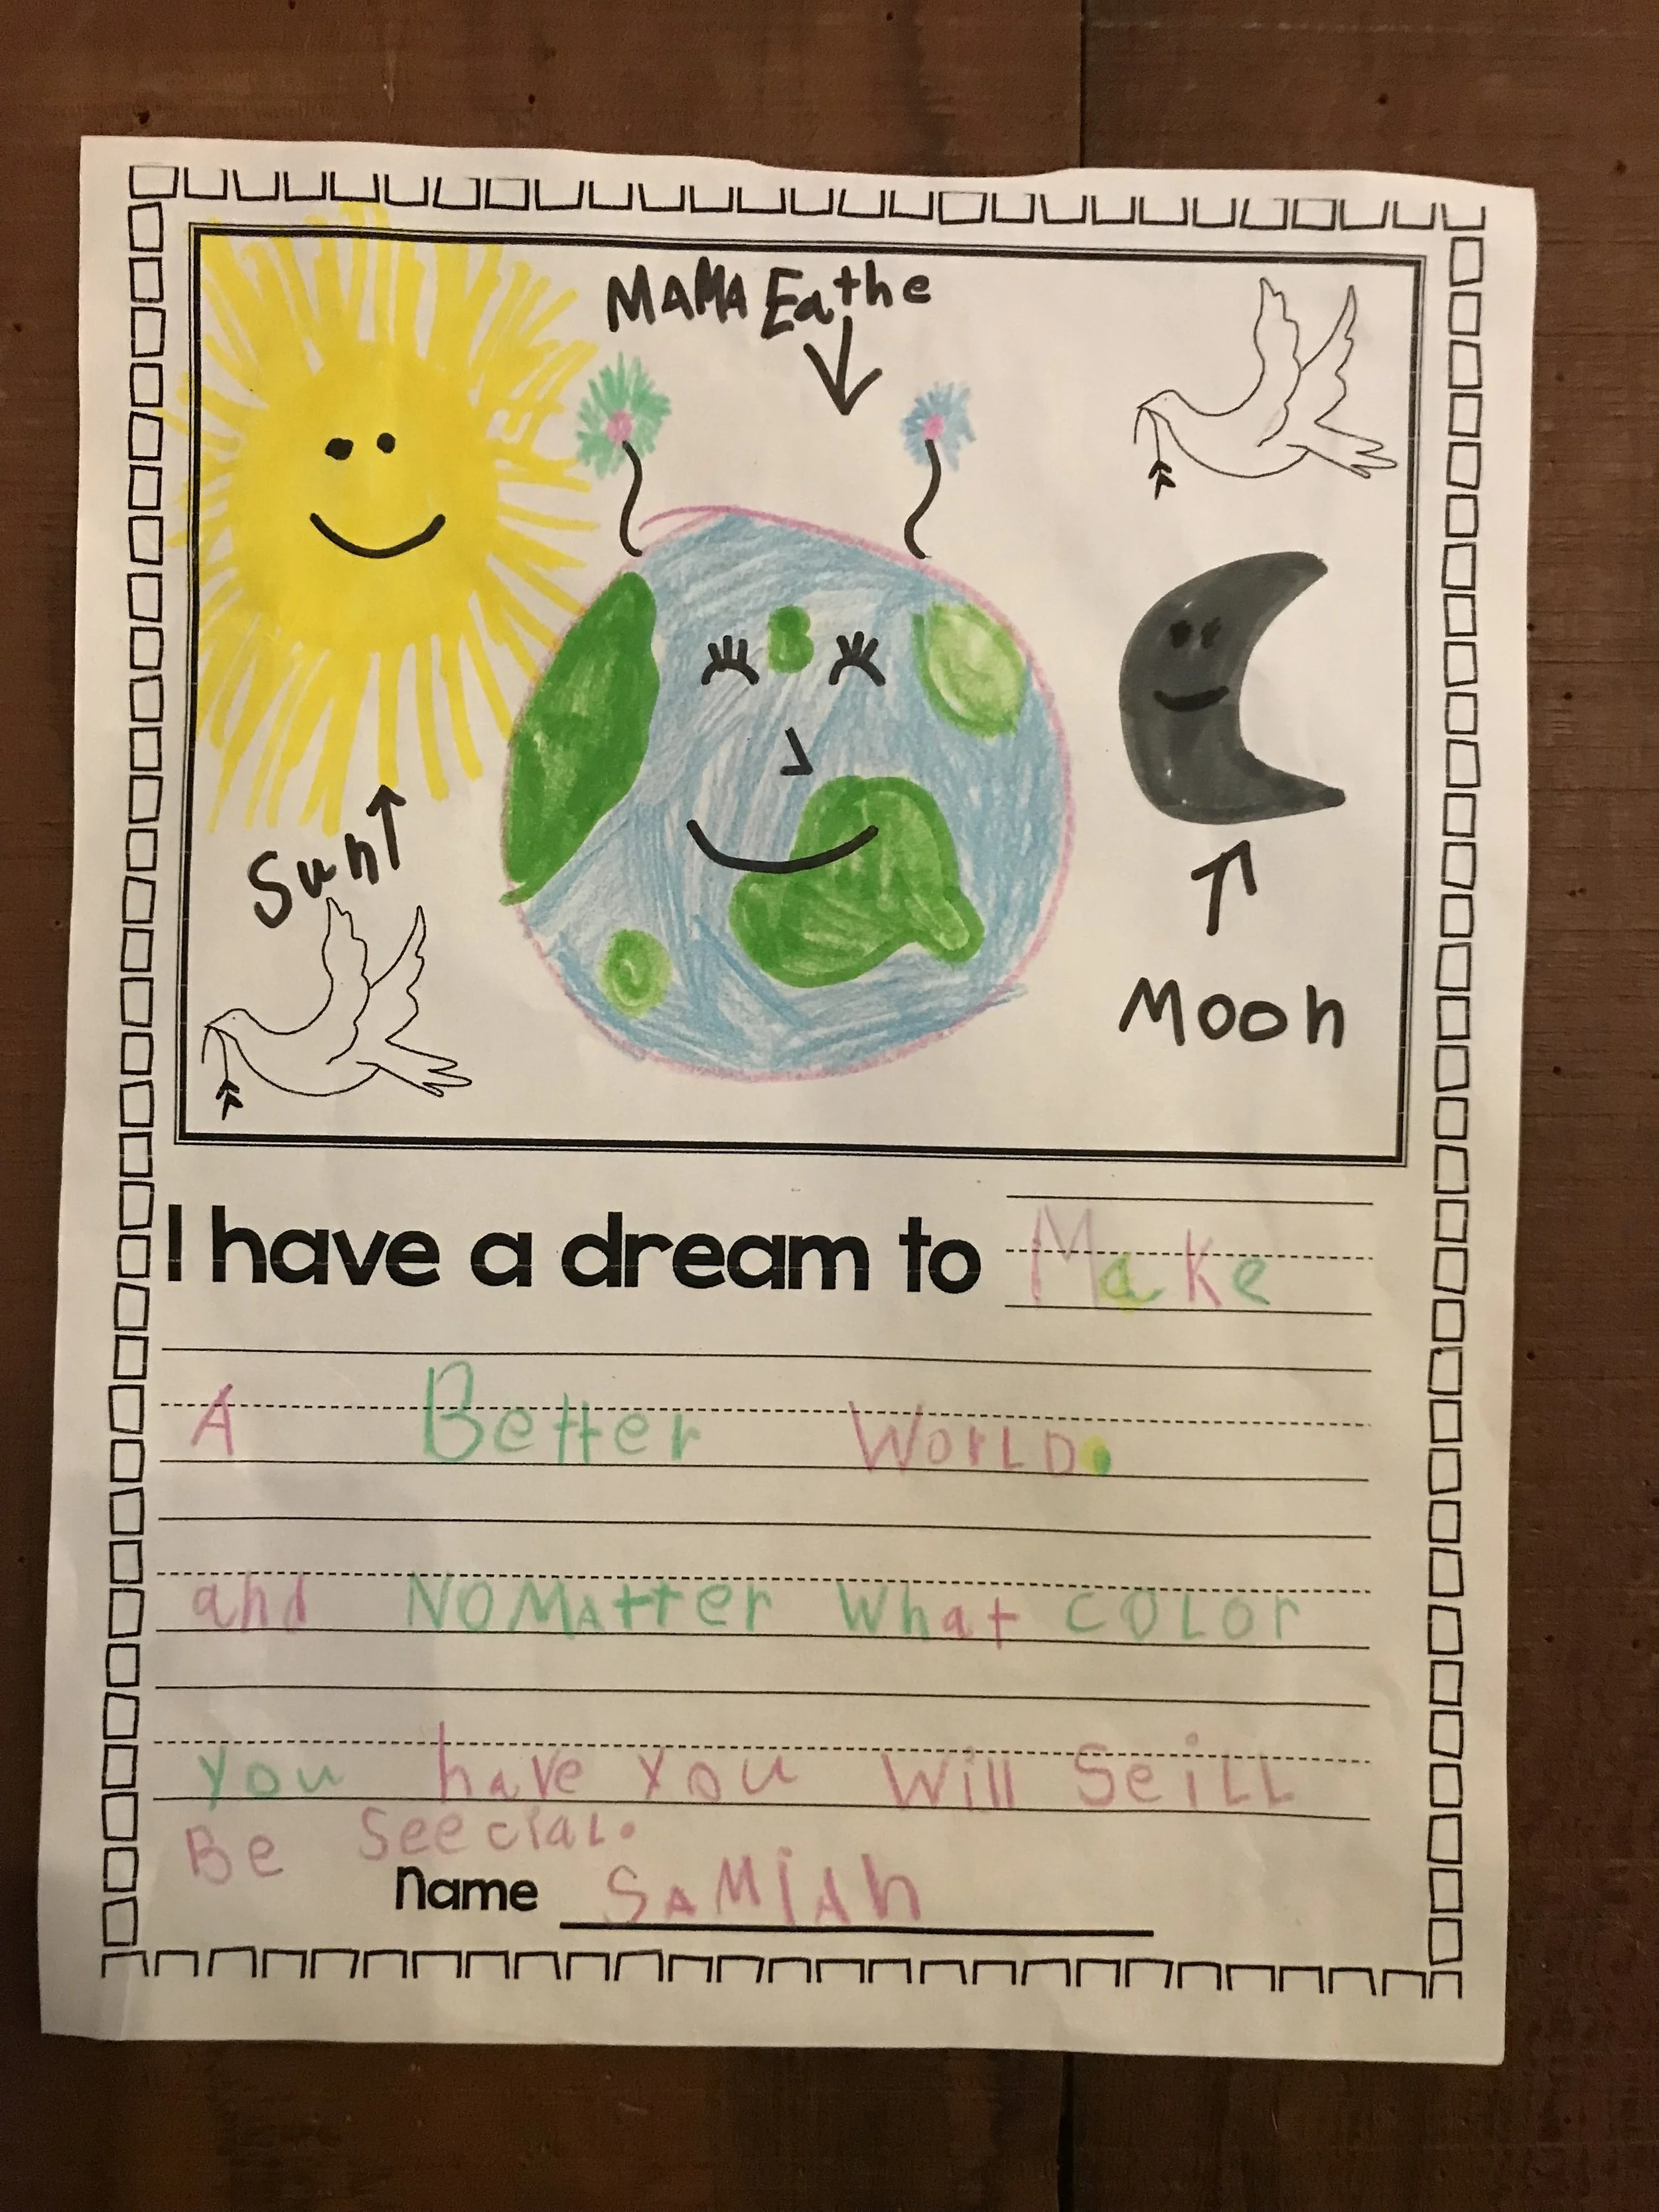 MAMA Eathe
Sun
Moon
I have a dream to Make
A Better WorLD.
and NO MAtter What COLor
you have you Will SeiLL
Be SeecialL.
Name SAMIAh